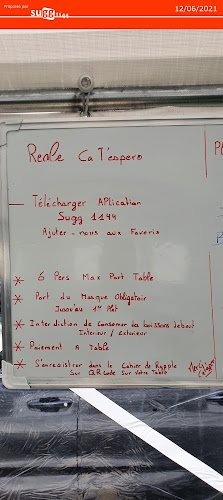 Propulsé par
sugg1144
12/06/2021
Reale Ca T'espero
P
— Télécharger APlication
Sugg 1144
Ajouter-nous aux Favoris
* 6 Pers Max Part Table
* Port du Masque Obligatoir
Jusqu'au 1er Plat
* Interdiction de Consomer les boissons debout
Interieur / Exterieur
* Paiement A Table
* S'enregistrer dans le Cahier de Rapple
Sur QR Code Sur Votre Table